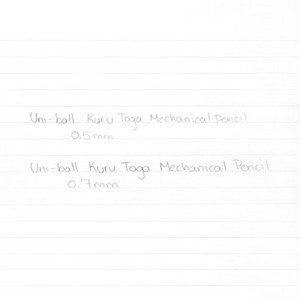 Uni-ball Kuru Toga Mechanical Pencil
0.5mm
Uni-ball Kuru Toga Mechanical Pencil
0.7mm